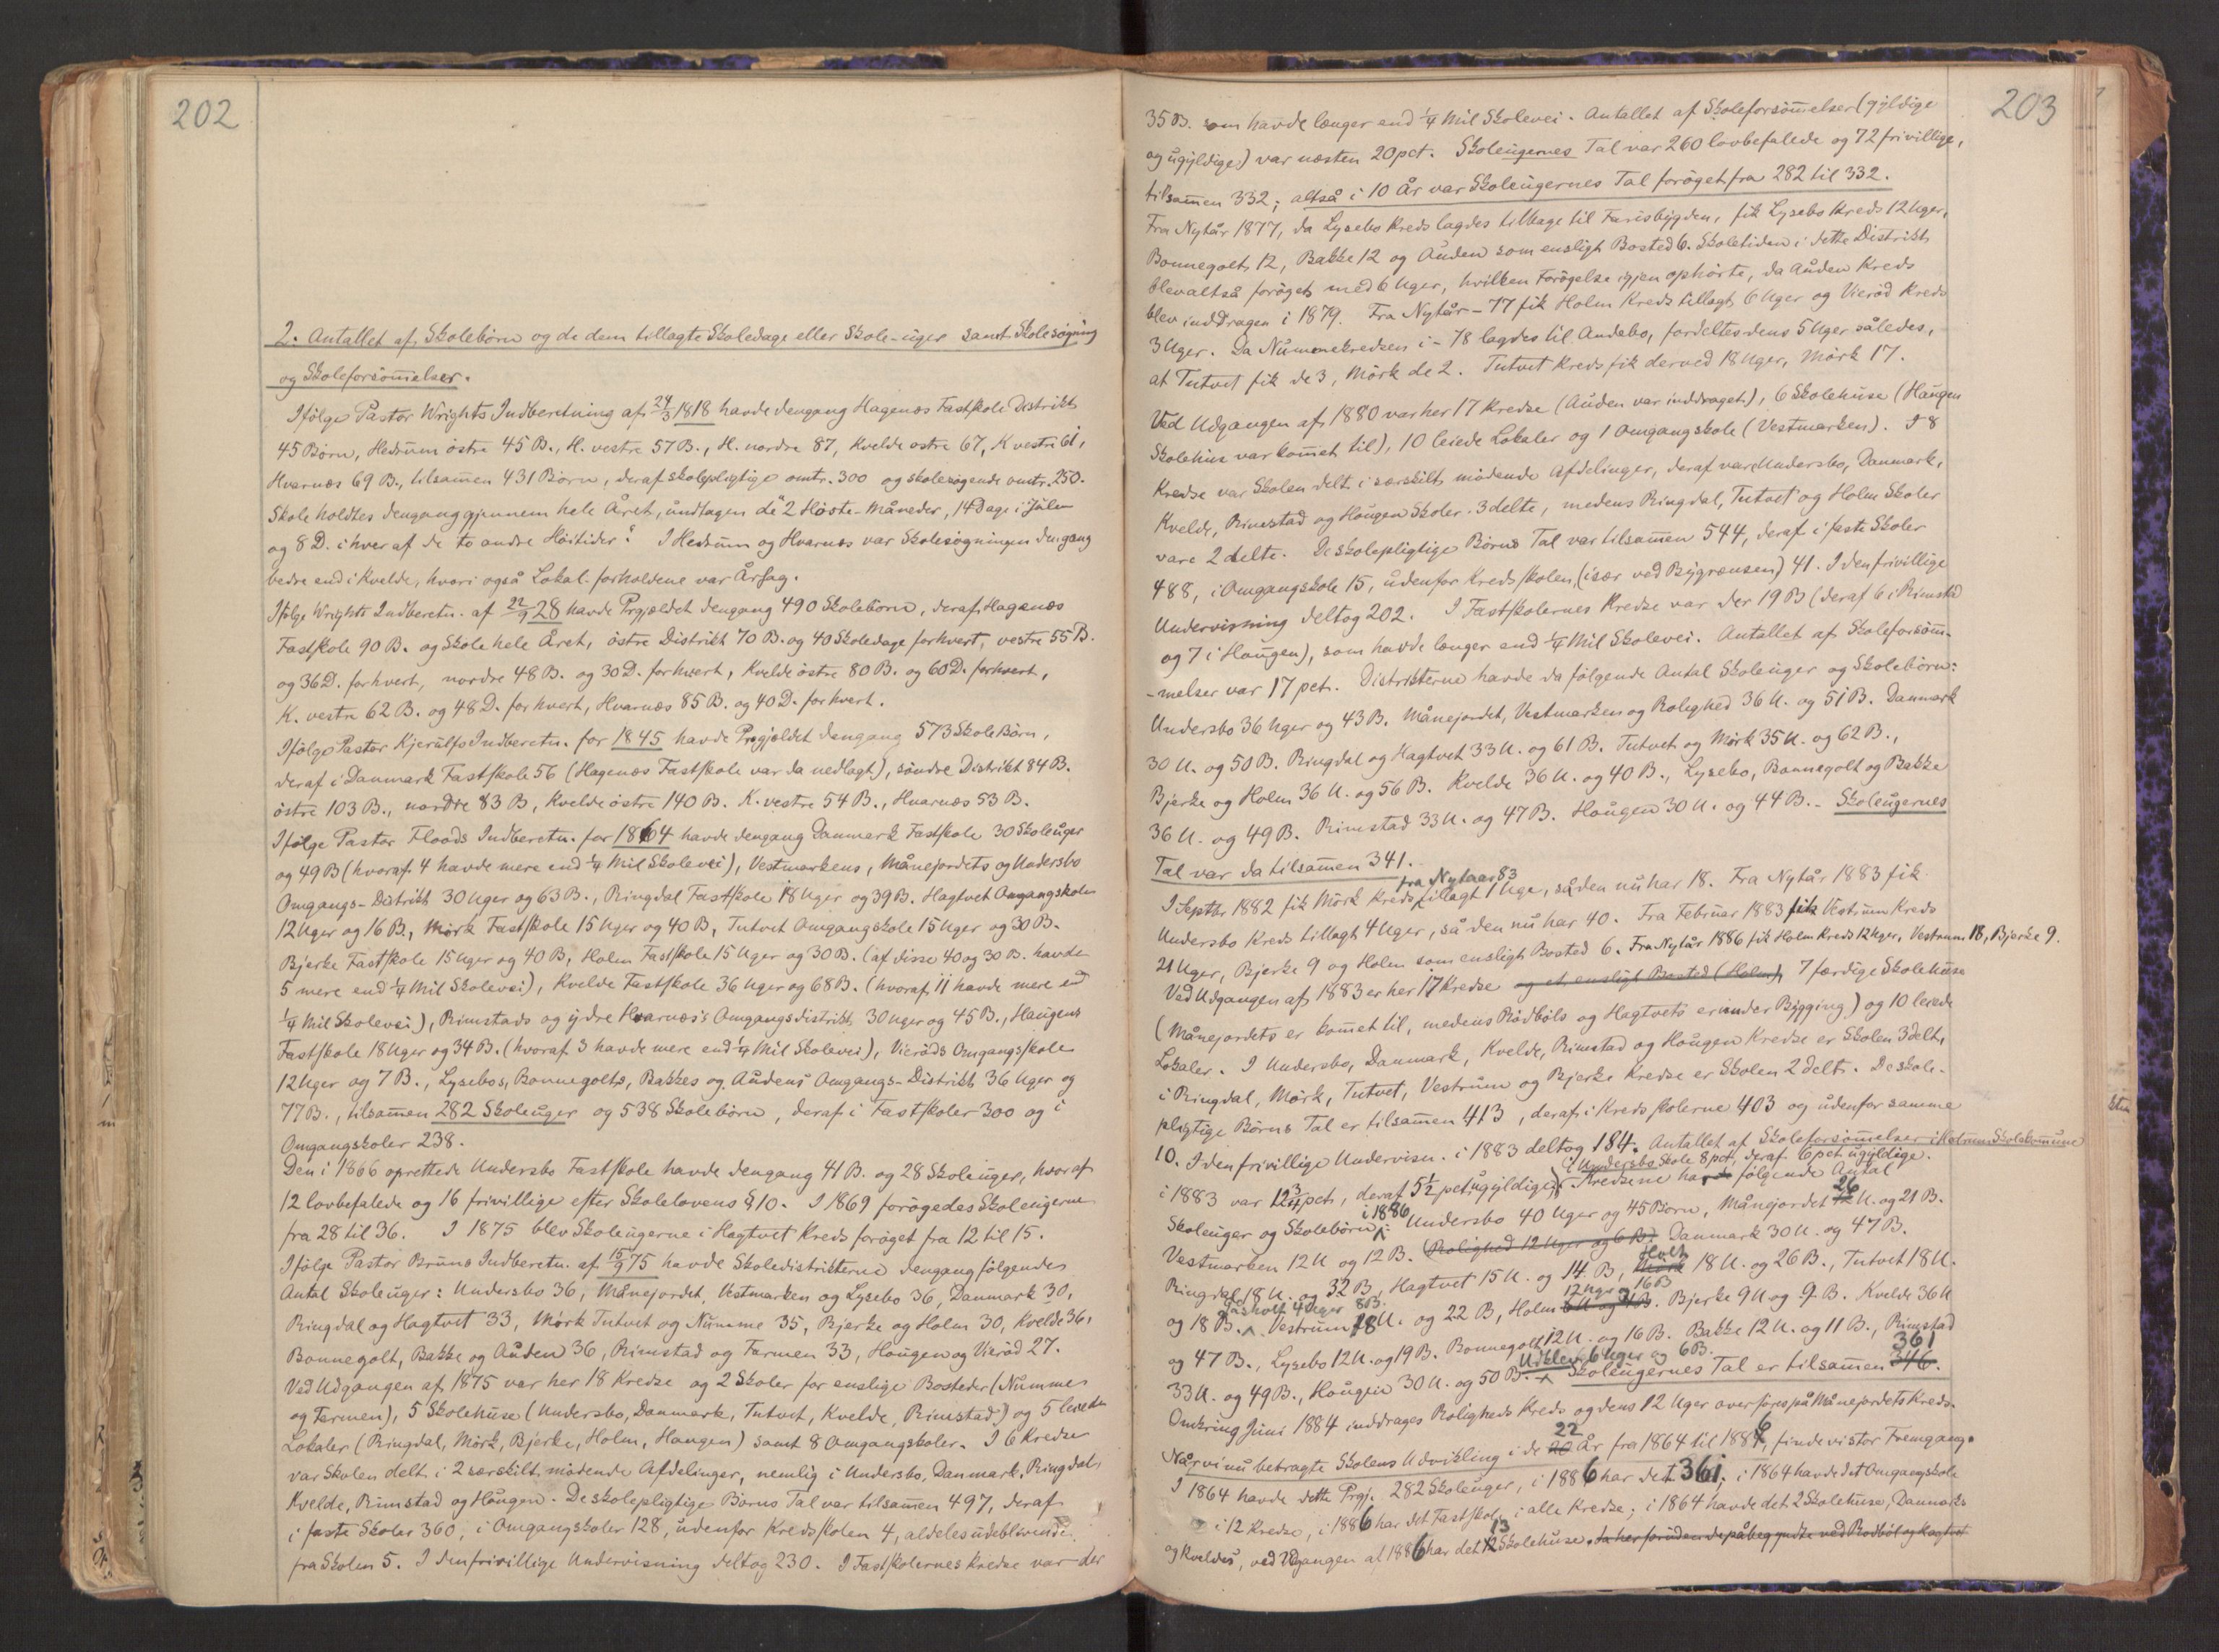 202
2. Antallet af Skolebörn og de dem tillagte Skoledage eller Skole-uger samt Skolesögning
og Skoleforsömelser.
Ifölge Pastor Wrights Indberetning af 24/3 1818 havde dengang Hagenæs Fastskole Distrikt
45 Börn, Hedrum östre 45 B., H. vestre 57 B., H. nordre 87, Kvelde østre 67, K vestre 61,
Hvarnæs 69 B., tilsamen 431 Börn, deraf skolepligtige omtr. 300 og skolesögende omtr. 250.
Skole holdtes dengang gjennem hele Året, undtagen de "2 Höste-Måneder, 14 Dage i Julen
og 8 D. i hver af de to andre Höitider". I Hedrum og Hvarnæs var Skolesögningen dengang
bedre end i Kvelde, hvori også Lokal-forholdene var Årsag.
Ifölge Wrights Indberetn. af 22/9 28 havde Prgjældet dengang 490 Skolebörn, deraf Hagenæs
Fastskole 90 B. og Skole hele Året, östre Distrikt 70 B. og 40 Skoledage forhvert, vestre 55 B.
og 36 D. forhvert, nordre 48 B. og 30 D. forhvert, Kvelde östre 80 B. og 60 D. forhvert,
K. vestre 62 B. og 48 D. forhvert, Hvarnæs 85 B. og 40 D. forhvert.
Ifölge Pastor Kjerulfs Indberetn. for 1845 havde Prgjeldet dengang 573 Skole Börn,
deraf i Danmark Fastskole 56 (Hagenæs Fastskole var da nedlagt), söndre Distrikt 84 B.
östre 103 B., nordre 83 B, Kvelde östre 140 B. K. vestre 54 B., Hvarnæs 53 B.
Ifölge Pastor Floods Indberetn. for 1864 havde dengang Danmark Fastskole 30 Skoleuger
og 49 B (hvoraf 4 havde mere end 1/4 Mil Skolevei), Vestmarkens, Månejordets og Undersbo
Omgangs-Distrikt 30 Uger og 63 B., Ringdal Fastskole 18 Uger og 39 B. Hagtvet Omgangskole
12 Uger og 16 B., Mörk Fastskole 15 Uger og 40 B, Tutvet Omgangskole 15 Uger og 30 B.
Bjerke Fastskole 15 Uger og 40 B, Holm Fastskole 15 Uger og 30 B. (af disse 40 og 30 B. havde
5 mere end 1/4 Mil Skolevei), Kvelde Fastskole 36 Uger og 68 B. (hvoraf 11 havde mere end
1/4 Mil Skolevei), Rimstads og ydre Hvarnæs's Omgangsdistrikt 30 Uger og 45 B., Haugens
Fastskole 18 Uger og 34 B. (hvoraf 3 havde mere end 1/4 Mil Skolevei), Vieröds Omgangsskole
12 Uger og 7 B., Lysebos, Bonnegolts, Bakkes og Audens Omgangs-Distrikt 36 Uger og
77 B., tilsamen 282 Skoleuger og 538 Skolebörn, deraf i Fastskoler 300 og i
Omgangskoler 238.
Den i 1866 oprettede Undersbo Fastskole havde dengang 41 B. og 28 Skoleuger, hvoraf
12 lovbefalede og 16 frivillige efter Skolelovens § 10. I 1869 forögedes Skoleugerne
fra 28 til 36. I 1875 blev Skoleugerne i Hagtvet Kreds foröget fra 12 til 15.
Ifölge Pastor Bruns Indberetn. af 15/9 75 havde Skoledistrikterne dengang fölgende
Antal Skoleuger: Undersbo 36, Månejordet, Vestmarken og Lysebo 36, Danmark 30,
Ringdal og Hagtvet 33, Mörk Tutvet og Numme 35, Bjerke og Holm 30, Kvelde 36,
Bonnegolt, Bakke og Auden 36, Rimstad og Farmen 33, Haugen og Vieröd 27.
Ved Udgangen af 1875 var her 18 Kredse og 2 Skoler for enslige Bosteder (Numme
og Farmen), 5 Skolehuse (Undersbo, Danmark, Tutvet, Kvelde, Rimstad) og 5 leiede
Lokaler (Ringdal, Mörk, Bjerke, Holm, Haugen) samt 8 Omgangskoler. I 6 Kredse
var Skolen delt i 2 særskilt mödende Afdelinger, nemlig i Undersbo, Danmark, Ringdal,
Kvelde, Rimstad og Haugen. De skolepligtige Börns Tal var tilsamen 497, deraf
i faste Skoler 360, i Omgangskoler 128, udenfor Kredsskolen 4, aldeles udeblivende
fra Skolen 5. I den frivillige Undervisning deltog 230. I Fastskolernes Kredse var der
203
35 B. som havde længer end 1/4 Mil Skolevei. Antallet af Skoleforsömelser (gyldige
og ugyldige) var næsten 20 pct. Skoleugernes Tal var 260 lovbefalede og 72 frivillige,
tilsamen 332; altså i 10 År var Skoleugernes Tal foröget fra 282 til 332.
Fra Nytår 1877, da Lysebo Kreds lagdes tilbage til Farisbygden, fik Lysebo Kreds 12 Uger,
Bonnegolt 12, Bakke 12 og Auden som ensligt Bosted 6. Skoletiden i dette Distrikt
blev altså foröget med 6 Uger, hvilken Forögelse igjen ophörte, da Auden Kreds
blev inddragen i 1879. Fra Nytår -77 fik Holm Kreds tillagt 6 Uger og Vieröd Kreds
3 Uger. Da Nummekredsen i -78 lagdes til Andebo, fordeltes dens 5 Uger således,
at Tutvet fik de 3, Mörk de 2. Tutvet Kreds fik derved 18 Uger, Mörk 17.
Ved Udgangen af 1880 var her 17 Kredse (Auden var inddraget), 6 Skolehuse (Haugen
Skolehus var komet til), 10 leiede Lokaler og 1 Omgangskole (Vestmarken). I 8
Kredse var Skolen delt i særskilt mödende Afdelinger, deraf var Undersbo, Danmark,
Kvelde, Rimstad og Haugen Skoler 3 delte, medens Ringdal, Tutvet og Holm Skoler
vare 2 delte. De skolepligtige Börns Tal var tilsamen 544, deraf i faste Skoler
488, i Omgangskole 15, udenfor Kredsskolen (især ved Bygrænsen) 41. I den frivillige
Undervisning deltog 202. I Fastskolernes Kredse var der 19 B (deraf 6 i Rimstad
og 7 i Haugen), som havde længer end 1/4 Mil Skolevei. Antallet af Skoleforsöm-
-melser var 17 pct. Distrikterne havde da fölgende Antal Skoleuger og Skolebörn:
Undersbo 36 Uger og 43 B. Månejordet, Vestmarken og Rolighed 36 U. og 51 B. Danmark
30 U. og 50 B. Ringdal og Hagtvet 33 U. og 61 B. Tutvet og Mörk 35 U. og 62 B.,
Bjerke og Holm 36 U. og 56 B. Kvelde 36 U. og 40 B., Lysebo, Bonnegolt og Bakke
36 U. og 49 B. Rimstad 33 U. og 47 B. Haugen 30 U. og 44 B. - Skoleugernes
Tal var da tilsamen 341.
fra Nytaar 83
I Septbr 1882 fik Mörk Kreds tillagt 1 Uge, så den nu har 18. Fra Nytår 1883 fik
Undersbo Kreds tillagt 4 Uger, så den nu har 40. Fra Februar 1883 fik Vestrum Kreds
21 Uger, Bjerke 9 og Holm som ensligt Bosted 6. Fra Nytår 1886 fik Holm Kreds 12 Uger, Vestrum 18, Bjerke 9.
Ved Udgangen af 1883 er her 17 Kredse og et ensligt Bosted (Holm), 7 færdige Skolehuse
(Månejordets er komet til, medens Rödböls og Hagtvets er under Bygging) og 10 leiede
Lokaler. I Undersbo, Danmark, Kvelde, Rimstad og Haugen Kredse er Skolen 3 delt,
i Ringdal, Mörk, Tutvet, Vestrum og Bjerke Kredse er Skolen 2 delt. De skole-
pligtige Börns Tal er tilsamen 413, deraf i Kredsskolerne 403 og udenfor samme
10. I den frivillige Undervisn. i 1883 deltog 184. Antallet af Skoleforsömelser i Hedrum Skolekomune
I Undersbo Skole 8 pct, deraf 6 pct ugyldige.
i 1883 var 12 3/4 pct, deraf 5 1/2 pct ugyldige. Kredsene har fölgende Antal
i 1886
26
Skoleuger og Skolebörn: Undersbo 40 Uger og 45 Börn, Månejordet U. og 21 B.
Vestmarken 12 U og 12 B. (Rolighed 12 Uger og 6 B). Danmark 30 U. og 47 B.
Holt
Ringdal 18 U. og 32 B, Hagtvet 15 U. og 14 B, Mörk 18 U. og 26 B., Tutvet 18 U.
4 Uger 8 B.
12 Uger 16 B
og 18 B. Vestrum 18 U. og 22 B, Holm. Bjerke 9 U og 9 B. Kvelde 36 U
og 47 B., Lysebo 12 U. og 19 B. Bonnegolt 12 U. og 16 B. Bakke 12 U. og 11 B., Rimstad
6 Uger og 6 B.
361
33 U. og 49 B., Haugen 30 U. og 50 B. Skoleugernes Tal er tilsamen 346.
Omkring Juni 1884 inddrages Roligheds Kreds og dens 12 Uger overföres på Månejordets Kreds.
22
Når vi nu betragte Skolens Udvikling i de 20 År fra 1864 til 1886, finde vi stor Fremgang.
I 1864 havde dette Prgj. 282 Skoleuger, i 1886 har det 361; i 1864 havde det Omgangskole
i 12 Kredse, i 1886 har det Fastskole i alle Kredse; i 1864 havde det 2 Skolehuse, Danmarks
13
og Kveldes, ved Udgangen af 1886 har det 12 Skolehuse, da her foruden de påbegyndte ved Rödböl og Hagtvet